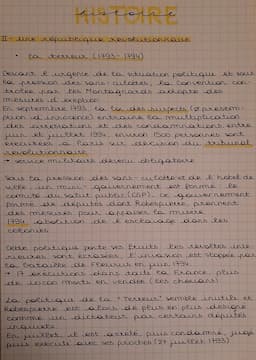 HISTOIRE
II - Une république révolutionnaire
• La Terreur (1793-1794)
Devant l'urgence de la situation politique et sous
la pression des sans-culottes, la Convention con-
trôlée par les Montagnards adopte des
mesures d'exception
En septembre 1793, la loi des suspects
prison entraine la multiplication
des arrestations et des condamnations entre
juin et juillet 1794, environ 1300 personnes sont
exécutées à Paris sur décision du tribunal
révolutionnaire
→ service militaire devenu obligatoire
Sous la pression des sans-culottes et de l'hôtel de
ville, un mini-gouvernement est formé: le
comité du salut public (CSP). Ce gouvernement
formé de députés dont Robespierre prennent
des mesures pour apaiser la misère
1794 abolition de l'esclavage dans les
colonies
Cette politique porte ses fruits: les révoltes inté-
rieures sont écrasées, l'invasion est stoppée par
la bataille de Fleurus en juin 1794.
→ 17 exécutions dans toute la France, plus
de morts en Vendée (les chouans)
La politique de la "Terreur" semble inutile et
Robespierre est alors de plus en plus désigné
comme un dictateur par certains députés
inquiets
En juillet, il est arrêté, puis condamné, jugé
puis exécuté avec ses proches (27 juillet 1793)